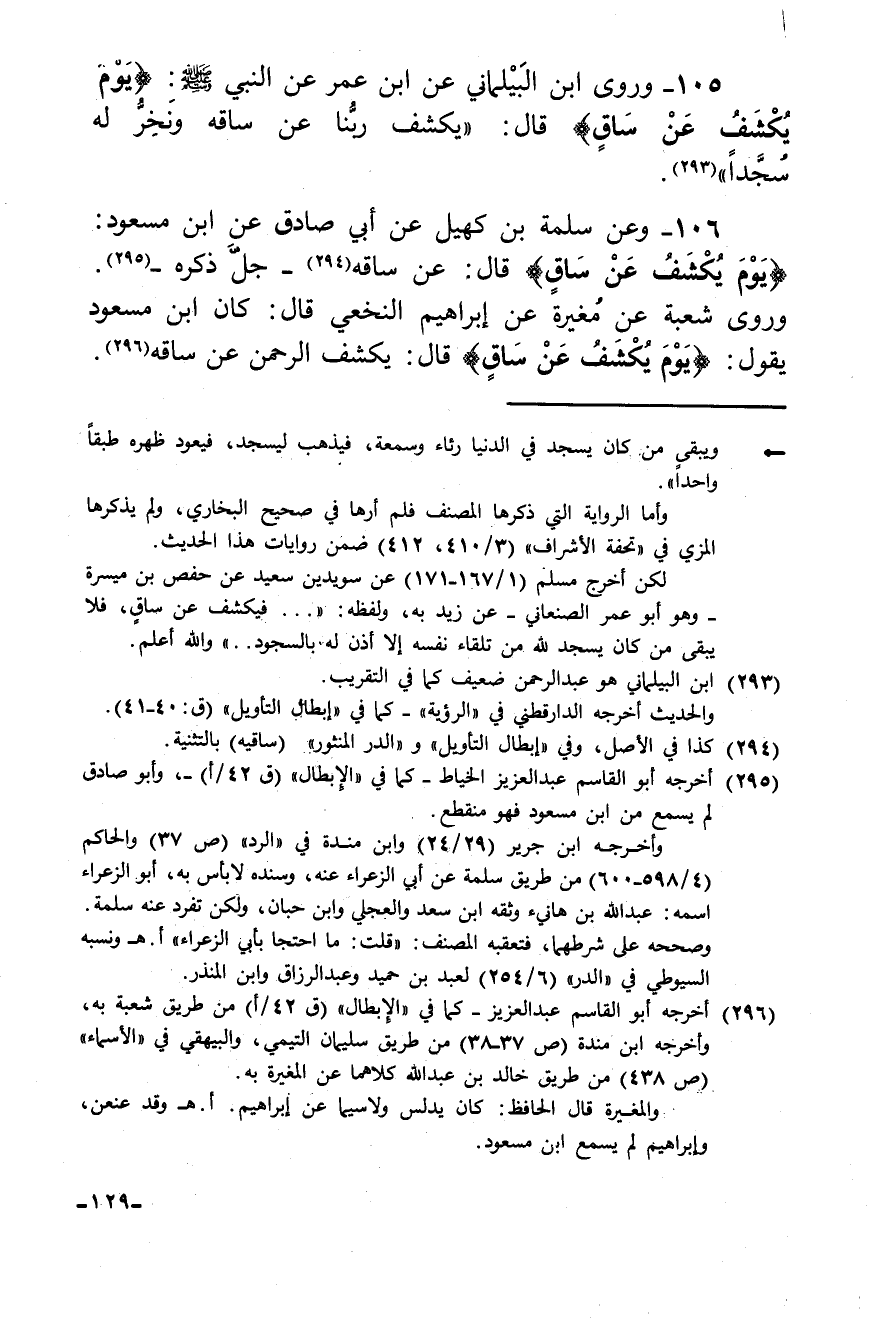 ١٠٥ـ وروى ابن البَيْلماني عن ابن عمر عن النبي ﷺ: ﴿يَوْمَ
يُكْشَفُ عَنْ سَاقٍ﴾ قال: «يكشف ربُّنا عن ساقه ونَخِرُّ له
سُجَّداً»(٢٩٣).
١٠٦ـ وعن سلمة بن كهيل عن أبي صادق عن ابن مسعود:
﴿يَوْمَ يُكْشَفُ عَنْ سَاقٍ﴾ قال: عن ساقه(٢٩٤) ـ جلَّ ذكره ـ(٢٩٥).
وروى شعبة عن مُغيرة عن إبراهيم النخعي قال: كان ابن مسعود
يقول: ﴿يَوْمَ يُكْشَفُ عَنْ سَاقٍ﴾ قال: يكشف الرحمن عن ساقه(٢٩٦).
← ويبقى من كان يسجد في الدنيا رئاء وسمعة، فيذهب ليسجد، فيعود ظهره طبقاً
واحداً».
وأما الرواية التي ذكرها المصنف فلم أرها في صحيح البخاري، ولم يذكرها
المزي في «تحفة الأشراف» (٤١٠/٣، ٤١٢) ضمن روايات هذا الحديث.
لكن أخرج مسلم (١٦٧/١-١٧١) عن سويدبن سعيد عن حفص بن ميسرة
ـ وهو أبو عمر الصنعاني ـ عن زيد به، ولفظه: «... فيكشف عن ساقٍ، فلا
يبقى من كان يسجد لله من تلقاء نفسه إلا أذن له بالسجود..» والله أعلم.
(٢٩٣) ابن البيلماني هو عبدالرحمن ضعيف كما في التقريب.
والحديث أخرجه الدارقطني في «الرؤية» ـ كما في «إبطال التأويل» (ق: ٤٠-٤١).
(٢٩٤) كذا في الأصل، وفي «إبطال التأويل» و «الدر المنثور» (ساقيه) بالتثنية.
(٢٩٥) أخرجه أبو القاسم عبدالعزيز الخياط ـ كما في «الإبطال» (ق ٤٢/أ) ـ، وأبو صادق
لم يسمع من ابن مسعود فهو منقطع.
وأخرجه ابن جرير (٢٤/٢٩) وابن مندة في «الرد» (ص ٣٧) والحاكم
(٥٩٨/٤-٦٠٠) من طريق سلمة عن أبي الزعراء عنه، وسنده لابأس به، أبو الزعراء
اسمه: عبدالله بن هانيء وثقه ابن سعد والعجلي وابن حبان، ولكن تفرد عنه سلمة.
وصححه على شرطهما، فتعقبه المصنف: «قلت: ما احتجا بأبي الزعراء» أ.هـ ونسبه
السيوطي في «الدر» (٢٥٤/٦) لعبد بن حميد وعبدالرزاق وابن المنذر.
(٢٩٦) أخرجه أبو القاسم عبدالعزيز ـ كما في «الإبطال» (ق ٤٢/أ) من طريق شعبة به،
وأخرجه ابن مندة (ص ٣٧-٣٨) من طريق سليمان التيمي، والبيهقي في «الأسماء»
(ص ٤٣٨) من طريق خالد بن عبدالله كلاهما عن المغيرة به.
والمغيرة قال الحافظ: كان يدلس ولاسيما عن إبراهيم. أ.هـ وقد عنعن،
وإبراهيم لم يسمع ابن مسعود.
-١٢٩-